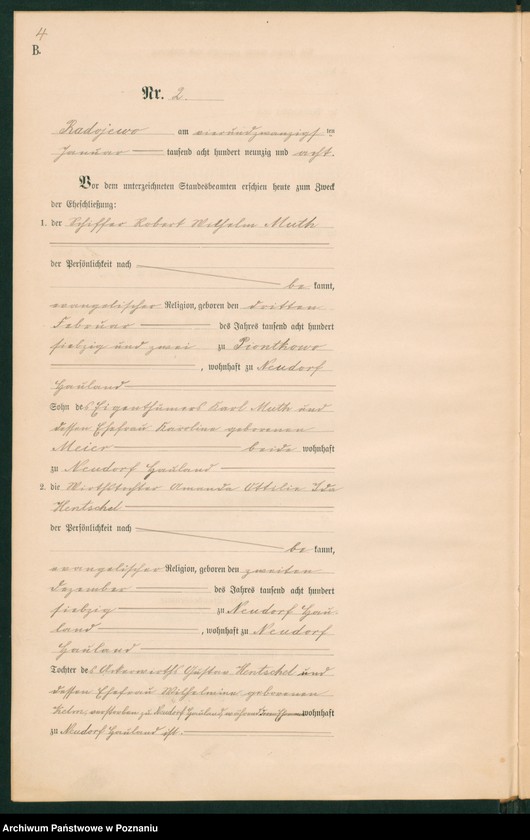 4
B.
Nr. 2.
Radojewo am vierundzwanzigsten
Januar tausend acht hundert neunzig und acht.
Vor dem unterzeichneten Standesbeamten erschien heute zum Zweck
der Eheschließung:
1. der Schiffer Robert Wilhelm Muth
der Persönlichkeit nach
be kannt,
evangelischer Religion, geboren den dritten
Februar des Jahres tausend acht hundert
siebzig und zwei zu Piontkowo
, wohnhaft zu Neudorf
Hauland
Sohn des Eigenthümers Karl Muth und
dessen Ehefrau Karoline geborenen
Meier beide wohnhaft
zu Neudorf Hauland
2. die Wirthstochter Amanda Ottilie Ida
Hentschel
der Persönlichkeit nach
be kannt,
evangelischer Religion, geboren den zweiten
Dezember des Jahres tausend acht hundert
siebzig zu Neudorf Hau-
land , wohnhaft zu Neudorf
Hauland
Tochter des Ackerwirths Gustav Hentschel und
dessen Ehefrau Wilhelmine geborenen
verstorben zu Neudorf Hauland, wohnhaft
zu Neudorf Hauland ist.
Archiwum Państwowe w Poznaniu